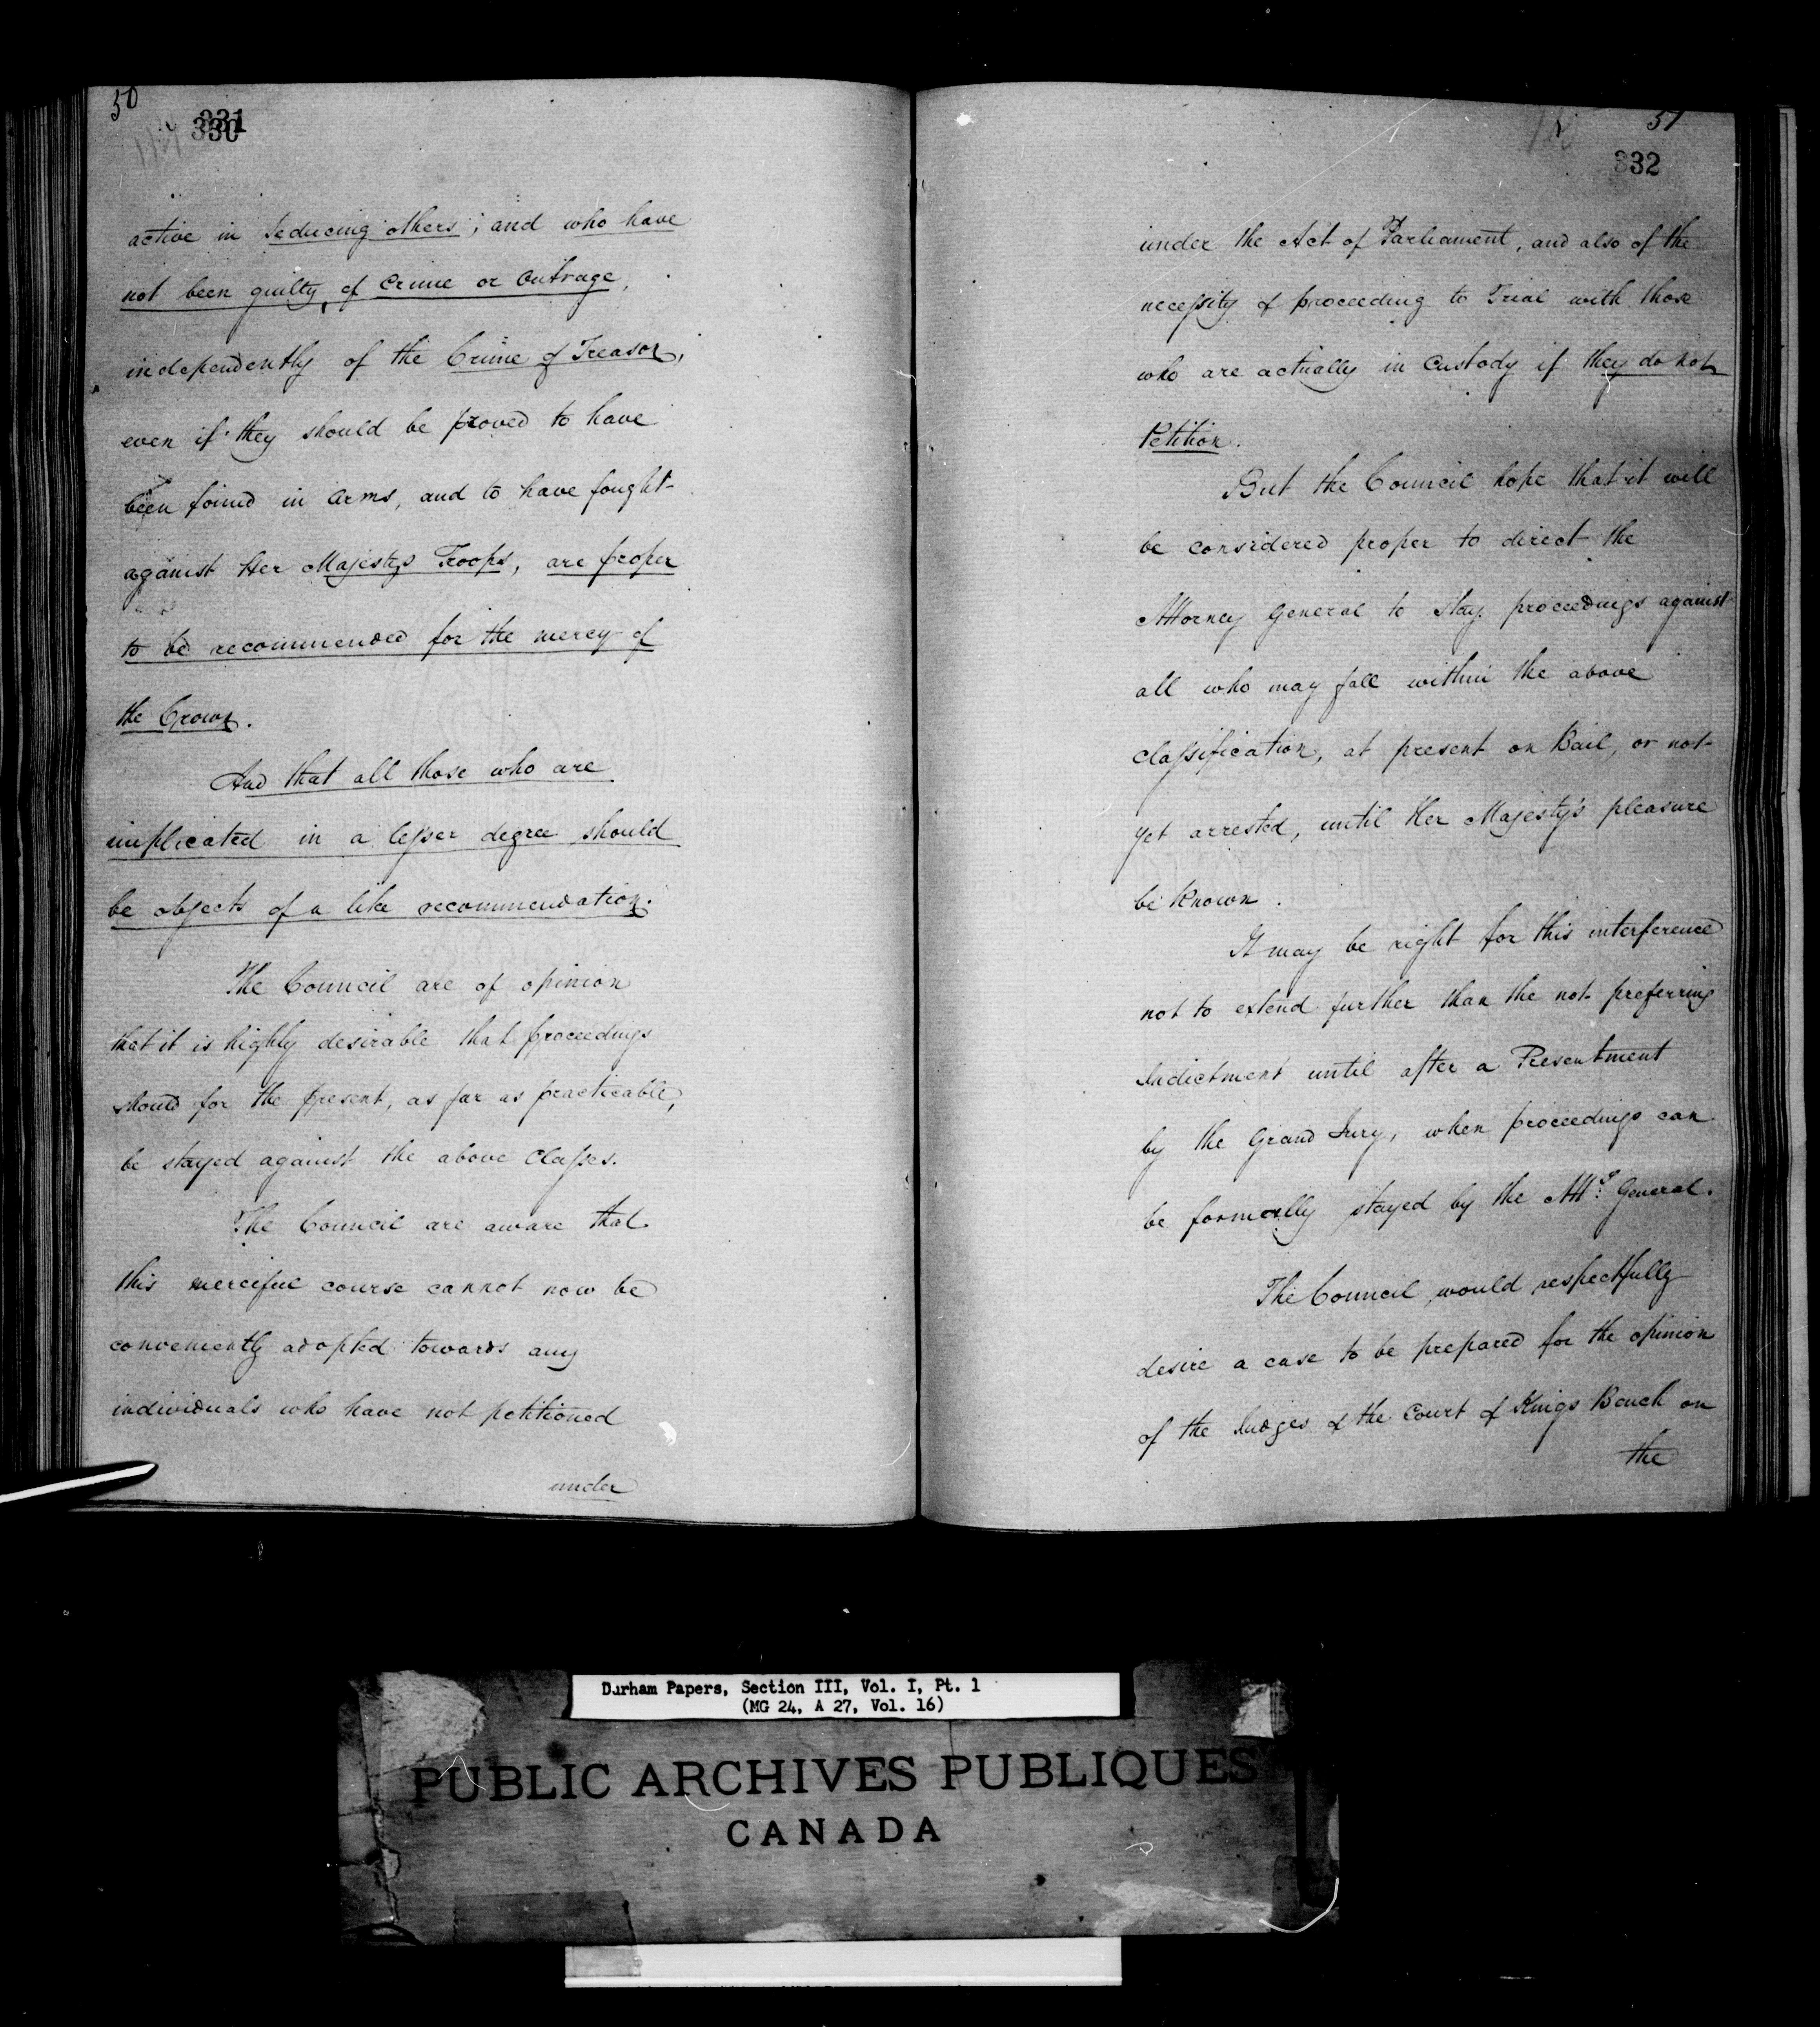 50
331
330
active in seducing others; and who have
not been guilty of Crime or Outrage,
independently of the Crime of Treason,
even if they should be proved to have
been found in Arms, and to have fought
against Her Majestys Troops, are proper
to be recommended for the mercy of
the Crown.
And that all those who are
implicated in a lesser degree should
be objects of a like recommendation.
The Council are of opinion
that it is highly desirable that proceedings
should for the present, as far as practicable,
be stayed against the above Classes.
The Council are aware that
this merciful course cannot now be
conveniently adopted towards any
individuals who have not petitioned
under
51
332
under the Act of Parliament, and also of the
necessity of proceeding to Trial with those
who are actually in Custody if they do not
Petition.
But the Council hope that it will
be considered proper to direct the
Attorney General to stay proceedings against
all who may fall within the above
classification, at present on Bail, or not
yet arrested, until Her Majesty's pleasure
be known.
It may be right for this interference
not to extend further than the not preferring
Indictment until after a Presentment
by the Grand Jury, when proceedings can
be formally stayed by the Atty General.
The Council would respectfully
desire a case to be prepared for the opinion
of the Judges of the Court of Kings Bench on
the
Durham Papers, Section III, Vol. I, Pt. 1
(MG 24, A 27, Vol. 16)
PUBLIC ARCHIVES PUBLIQUES
CANADA